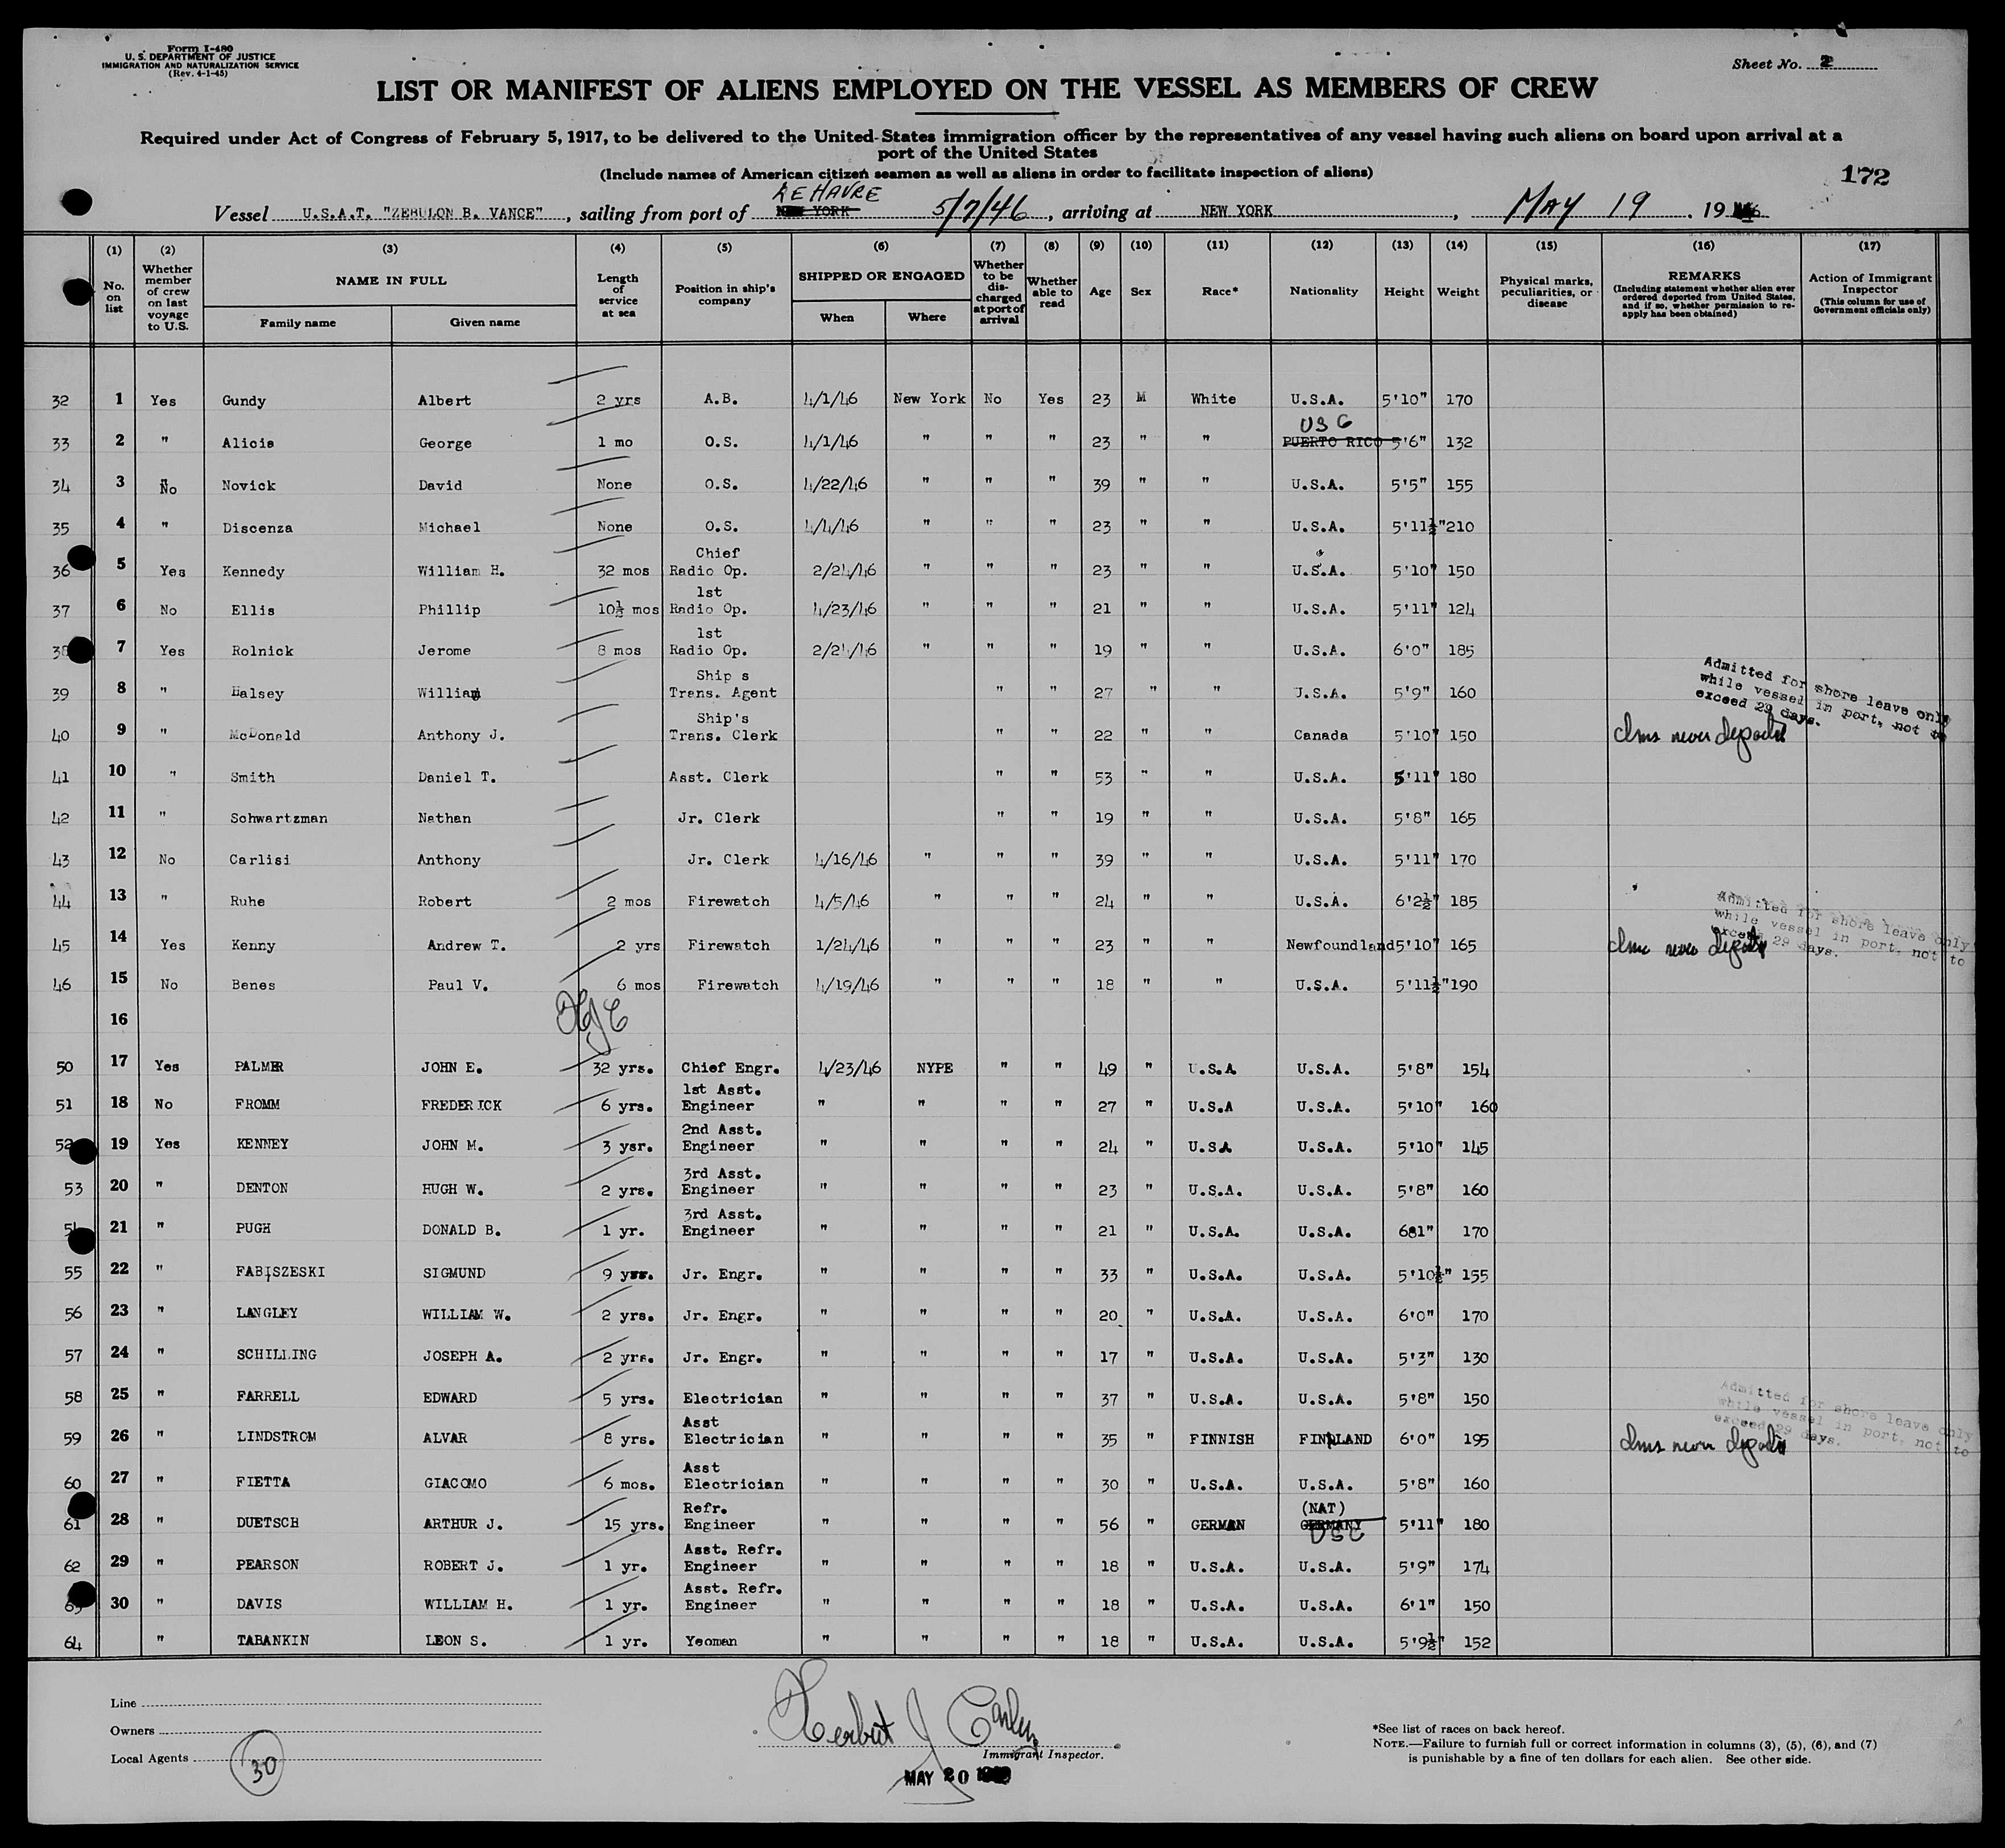 Form I-480
U. S. DEPARTMENT OF JUSTICE
IMMIGRATION AND NATURALIZATION SERVICE
(Rev. 4-1-45)
Sheet No. 2
LIST OR MANIFEST OF ALIENS EMPLOYED ON THE VESSEL AS MEMBERS OF CREW
Required under Act of Congress of February 5, 1917, to be delivered to the United States immigration officer by the representatives of any vessel having such aliens on board upon arrival at a
port of the United States
(Include names of American citizen seamen as well as aliens in order to facilitate inspection of aliens)
172
LE HAVRE
Vessel U.S.A.T. "ZEBULON B. VANCE", sailing from port of NEW YORK 5/7/46, arriving at NEW YORK, MAY 19, 1946
(1) (2) (3) (4) (5) (6) (7) (8) (9) (10) (11) (12) (13) (14) (15) (16) (17)
No. on list
Whether member of crew on last voyage to U.S.
NAME IN FULL
Family name
Given name
Length of service at sea
Position in ship's company
SHIPPED OR ENGAGED
When
Where
Whether to be discharged at port of arrival
Whether able to read
Age
Sex
Race*
Nationality
Height
Weight
Physical marks, peculiarities, or disease
REMARKS
(Including statement whether alien ever ordered deported from United States, and if so, whether permission to reapply has been obtained)
Action of Immigrant Inspector
(This column for use of Government officials only)
32 1 Yes Gundy Albert 2 yrs A.B. 4/1/46 New York No Yes 23 M White U.S.A. 5'10" 170
USC
33 2 " Alicia George 1 mo O.S. 4/1/46 " " " 23 " " PUERTO RICO 5'6" 132
34 3 No Novick David None O.S. 4/22/46 " " " 39 " " U.S.A. 5'5" 155
35 4 " Discenza Michael None O.S. 4/4/46 " " " 23 " " U.S.A. 5'11½" 210
36 5 Yes Kennedy William H. 32 mos Chief Radio Op. 2/24/46 " " " 23 " " U.S.A. 5'10" 150
37 6 No Ellis Phillip 10½ mos 1st Radio Op. 4/23/46 " " " 21 " " U.S.A. 5'11" 124
38 7 Yes Rolnick Jerome 8 mos 1st Radio Op. 2/24/46 " " " 19 " " U.S.A. 6'0" 185
39 8 " Halsey William Ship s Trans. Agent " " 27 " " U.S.A. 5'9" 160
Admitted for shore leave only while vessel in port, not to exceed 29 days.
40 9 " McDonald Anthony J. Ship's Trans. Clerk " " 22 " " Canada 5'10" 150 clms never deported
41 10 " Smith Daniel T. Asst. Clerk " " 53 " " U.S.A. 5'11" 180
42 11 " Schwartzman Nathan Jr. Clerk " " 19 " " U.S.A. 5'8" 165
43 12 No Carlisi Anthony Jr. Clerk 4/16/46 " " " 39 " " U.S.A. 5'11" 170
44 13 " Ruhe Robert 2 mos Firewatch 4/5/46 " " " 24 " " U.S.A. 6'2½" 185
Admitted for shore leave only while vessel in port, not to exceed 29 days.
45 14 Yes Kenny Andrew T. 2 yrs Firewatch 1/24/46 " " " 23 " " Newfoundland 5'10" 165 clms never deported
46 15 No Benes Paul V. 6 mos Firewatch 4/19/46 " " " 18 " " U.S.A. 5'11½" 190
16 HJC
50 17 Yes PALMER JOHN E. 32 yrs. Chief Engr. 4/23/46 NYPE " " 49 " U.S.A U.S.A. 5'8" 154
51 18 No FROMM FREDERICK 6 yrs. 1st Asst. Engineer " " " " 27 " U.S.A U.S.A. 5'10" 160
52 19 Yes KENNEY JOHN M. 3 ysr. 2nd Asst. Engineer " " " " 24 " U.SA U.S.A. 5'10" 145
53 20 " DENTON HUGH W. 2 yrs. 3rd Asst. Engineer " " " " 23 " U.S.A. U.S.A. 5'8" 160
54 21 " PUGH DONALD B. 1 yr. 3rd Asst. Engineer " " " " 21 " U.S.A. U.S.A. 681" 170
55 22 " FABISZESKI SIGMUND 9 yrs. Jr. Engr. " " " " 33 " U.S.A. U.S.A. 5'10½" 155
56 23 " LANGLEY WILLIAM W. 2 yrs. Jr. Engr. " " " " 20 " U.S.A. U.S.A. 6'0" 170
57 24 " SCHILLING JOSEPH A. 2 yrs. Jr. Engr. " " " " 17 " U.S.A. U.S.A. 5'3" 130
58 25 " FARRELL EDWARD 5 yrs. Electrician " " " " 37 " U.S.A. U.S.A. 5'8" 150
Admitted for shore leave only while vessel in port, not to exceed 29 days.
59 26 " LINDSTROM ALVAR 8 yrs. Asst Electrician " " " " 35 " FINNISH FINLAND 6'0" 195 clms never deported
60 27 " FIETTA GIACOMO 6 mos. Asst Electrician " " " " 30 " U.S.A. U.S.A. 5'8" 160
61 28 " DUETSCH ARTHUR J. 15 yrs. Refr. Engineer " " " " 56 " GERMAN (NAT) GERMANY USC 5'11" 180
62 29 " PEARSON ROBERT J. 1 yr. Asst. Refr. Engineer " " " " 18 " U.S.A. U.S.A. 5'9" 174
63 30 " DAVIS WILLIAM H. 1 yr. Asst. Refr. Engineer " " " " 18 " U.S.A. U.S.A. 6'1" 150
64 " TABANKIN LEON S. 1 yr. Yeoman " " " " 18 " U.S.A. U.S.A. 5'9½" 152
Line
Owners
Local Agents
30
Herbert J
Immigrant Inspector.
MAY 20
*See list of races on back hereof.
NOTE.—Failure to furnish full or correct information in columns (3), (5), (6), and (7)
is punishable by a fine of ten dollars for each alien. See other side.